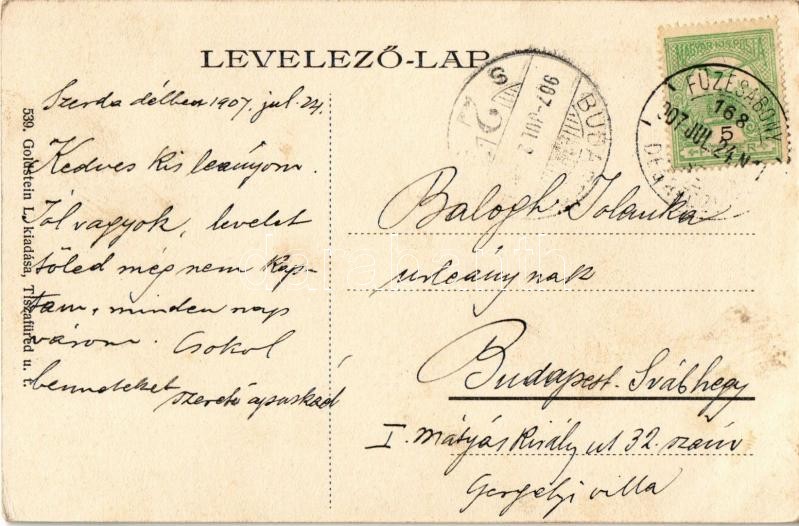 LEVELEZŐ-LAP
Szerda délben 1907. jul. 24.
Kedves kis leányom.
Jól vagyok, levelet
tőled még nem kap-
tam, minden nap
várom. Csokol
benneteket
szerető apuskád
539. Goldstein L. kiadása, Tiszafüred u. t.
MAGYAR KIR. POSTA
FÜZESABONY
168
5
907 JUL. 24 N 7
DE
BUDA
907 JUL 2
S
Balogh Jolanka
urleánynak
Budapest-Svábhegy
I. Mátyás Király ut 32. szám
Gergelyi villa
darabanth.com